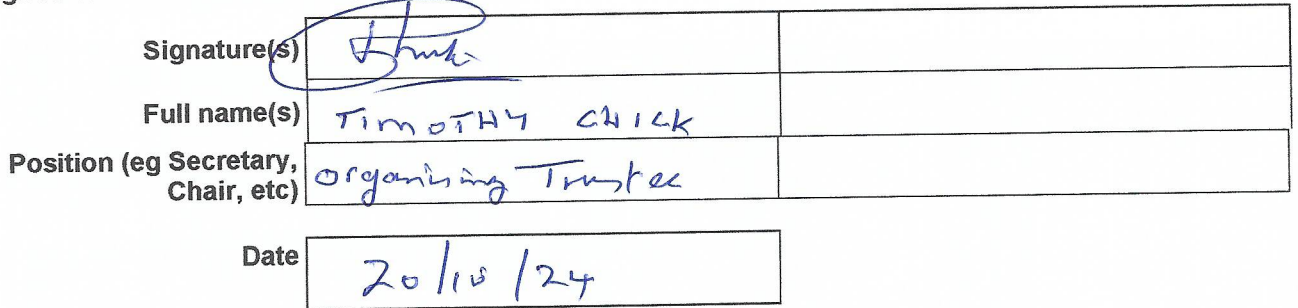 Signature(s)
Full name(s) TIMOTHY CHICK
Position (eg Secretary,
Chair, etc) Organising Trustee
Date 20/10/24